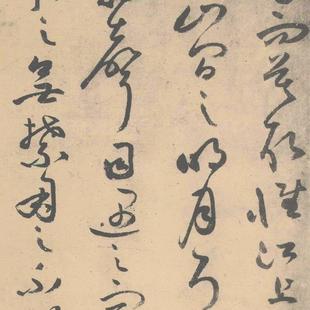 而莫取惟江上
山間之明月耳
為聲目遇之而
之無禁用之不